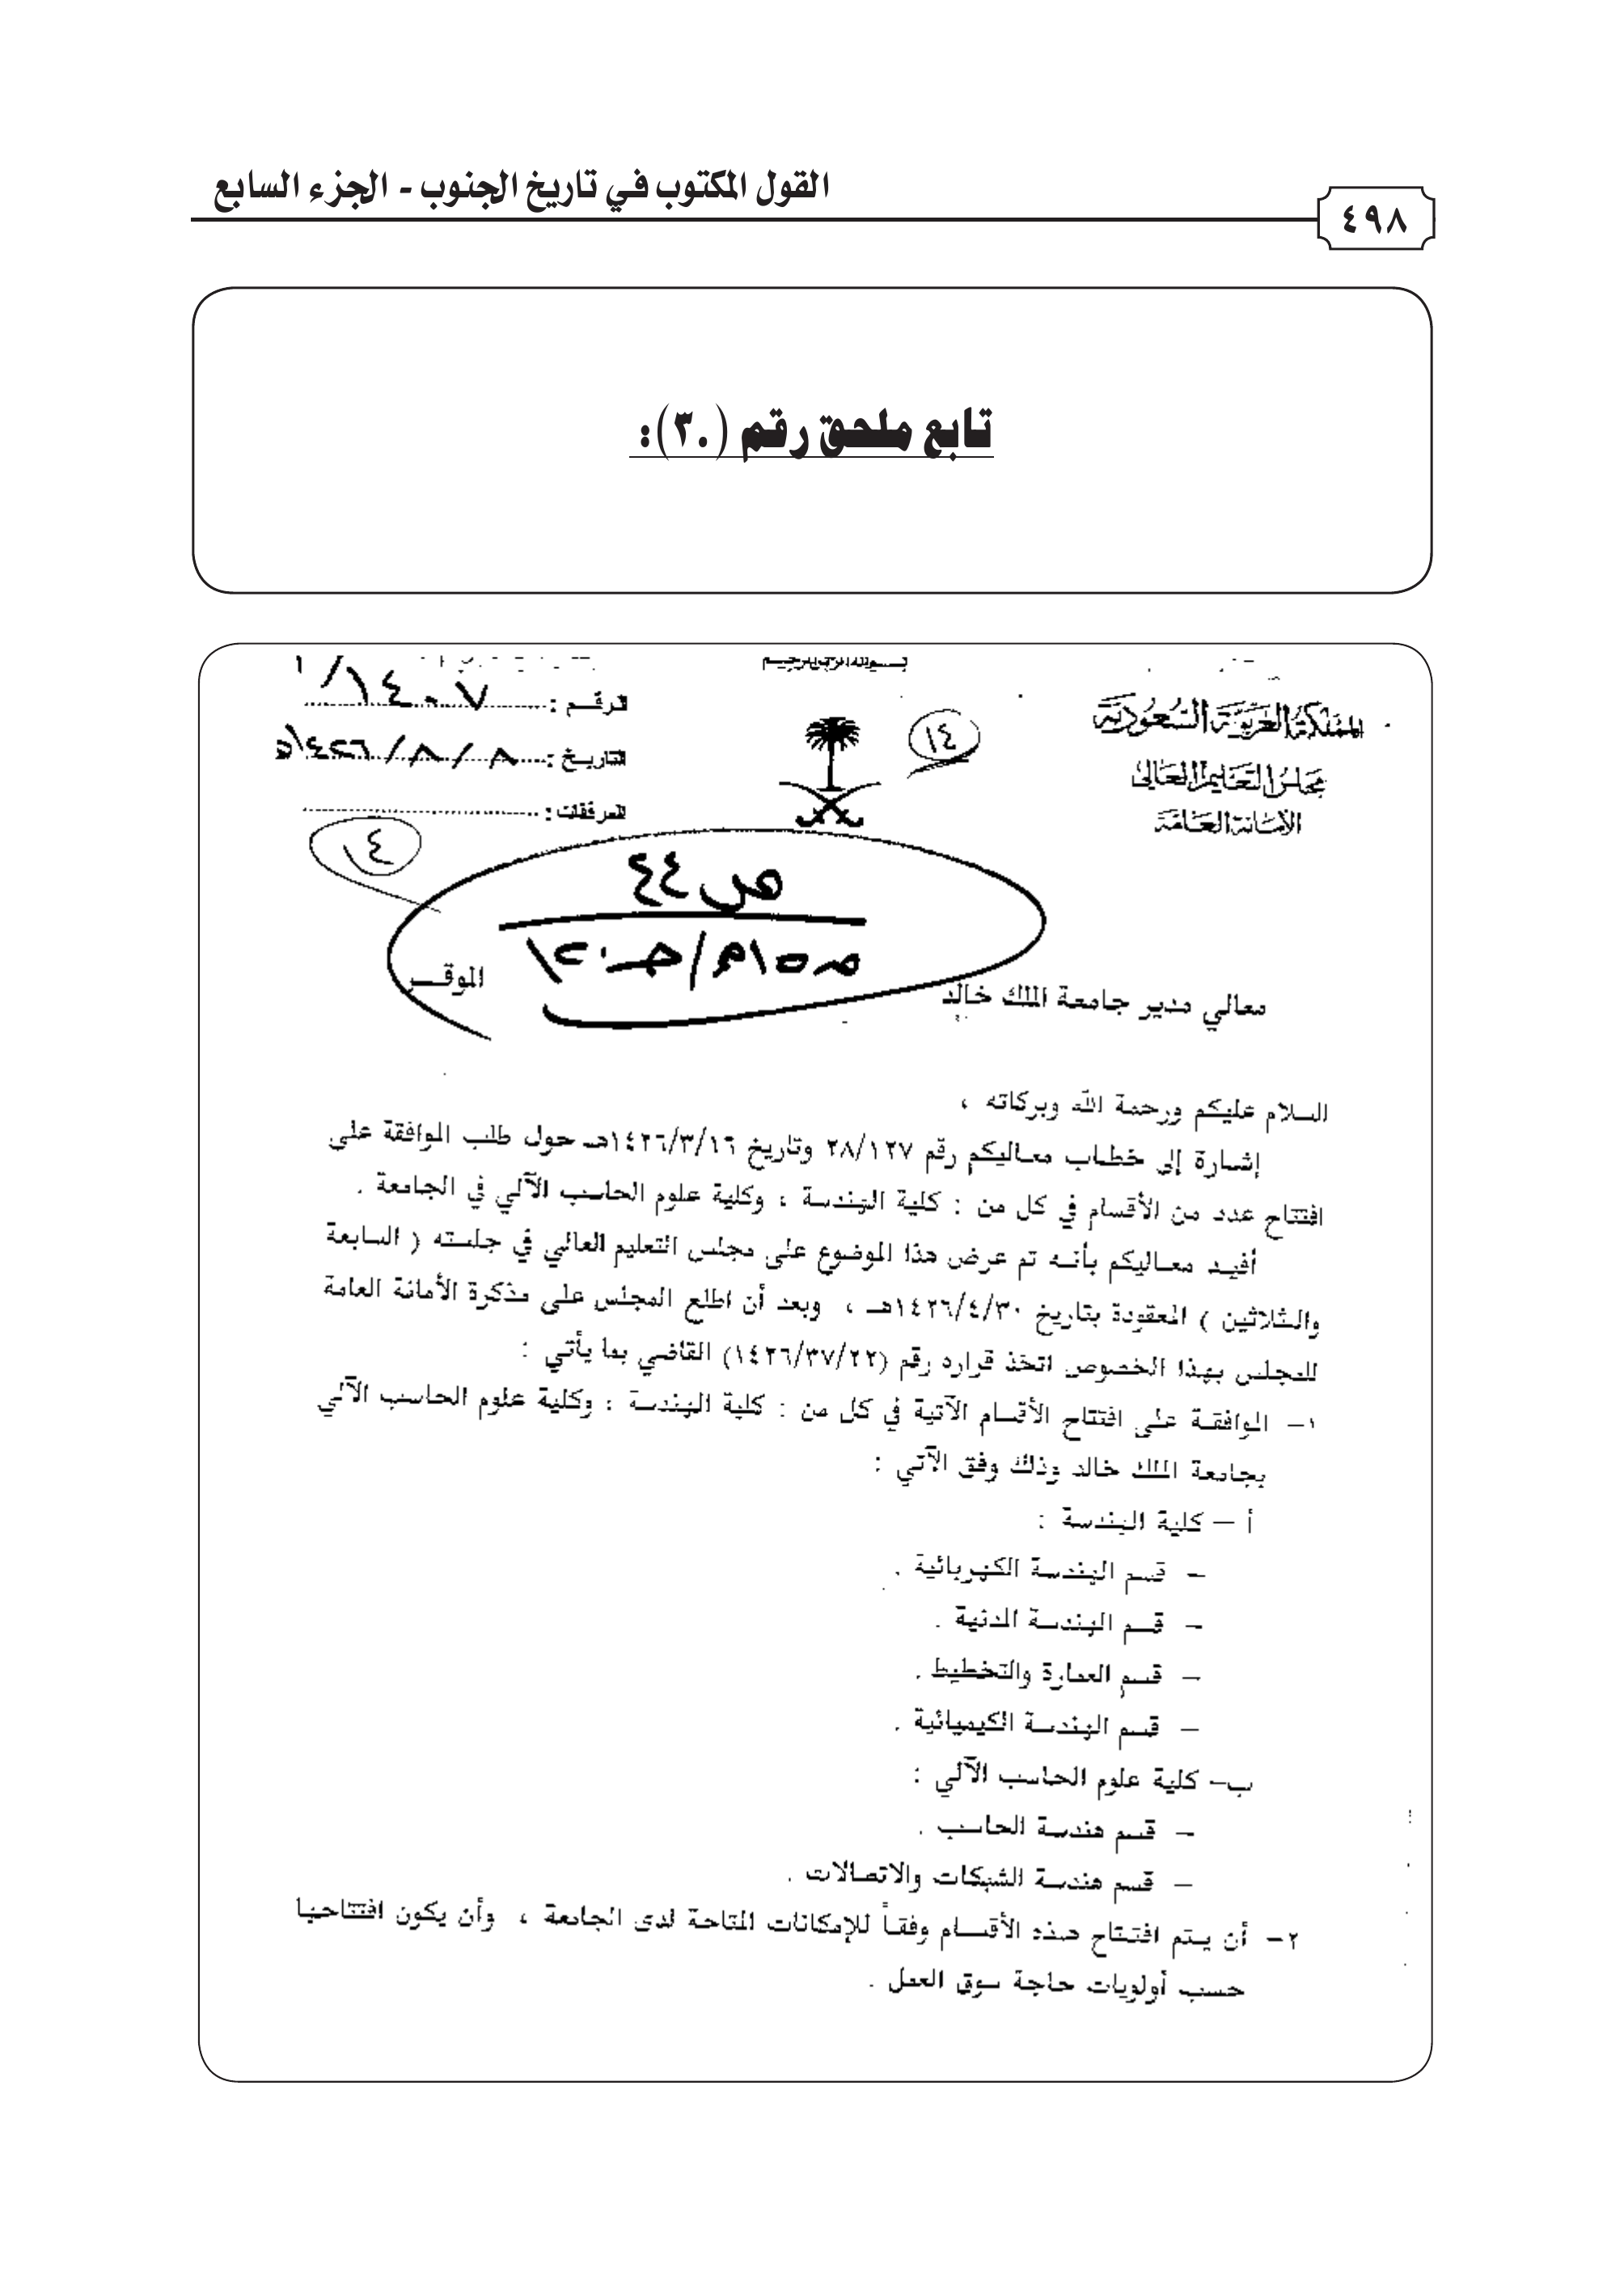 القول المكتوب في تاريخ الجنوب - الجزء السابع
٤٩٨
تابع ملحق رقم (٣٠):
بسم الله الرحمن الرحيم
المملكة العربية السعودية
مجلس التعليم العالي
الأمانة العامة
١٤
الرقم : ١٤٠٧/١
التاريخ : ٨/٨/١٤٢٦هـ
المرفقات :
١٤
ص ٤٤
معالي مدير جامعة الملك خالد الموقـ
السلام عليكم ورحمة الله وبركاته ،
إشارة إلى خطاب معاليكم رقم ٢٨/١٢٧ وتاريخ ١٤٢٦/٣/١٦هـ حول طلب الموافقة على
افتتاح عدد من الأقسام في كل من : كلية الهندسة ، وكلية علوم الحاسب الآلي في الجامعة .
أفيد معاليكم بأنه تم عرض هذا الموضوع على مجلس التعليم العالي في جلسته ( السابعة
والثلاثين ) المعقودة بتاريخ ١٤٢٦/٤/٣٠هـ ، وبعد أن اطلع المجلس على مذكرة الأمانة العامة
للمجلس بهذا الخصوص اتخذ قراره رقم (١٤٢٦/٣٧/٢٢) القاضي بما يأتي :
١- الموافقة على افتتاح الأقسام الآتية في كل من : كلية الهندسة ، وكلية علوم الحاسب الآلي
بجامعة الملك خالد وذلك وفق الآتي :
أ – كلية الهندسة :
– قسم الهندسة الكهربائية .
– قسم الهندسة المدنية .
– قسم العمارة والتخطيط .
– قسم الهندسة الكيميائية .
ب– كلية علوم الحاسب الآلي :
– قسم هندسة الحاسب .
– قسم هندسة الشبكات والاتصالات .
٢- أن يتم افتتاح هذه الأقسام وفقاً للإمكانات المتاحة لدى الجامعة ، وأن يكون افتتاحها
حسب أولويات حاجة سوق العمل .